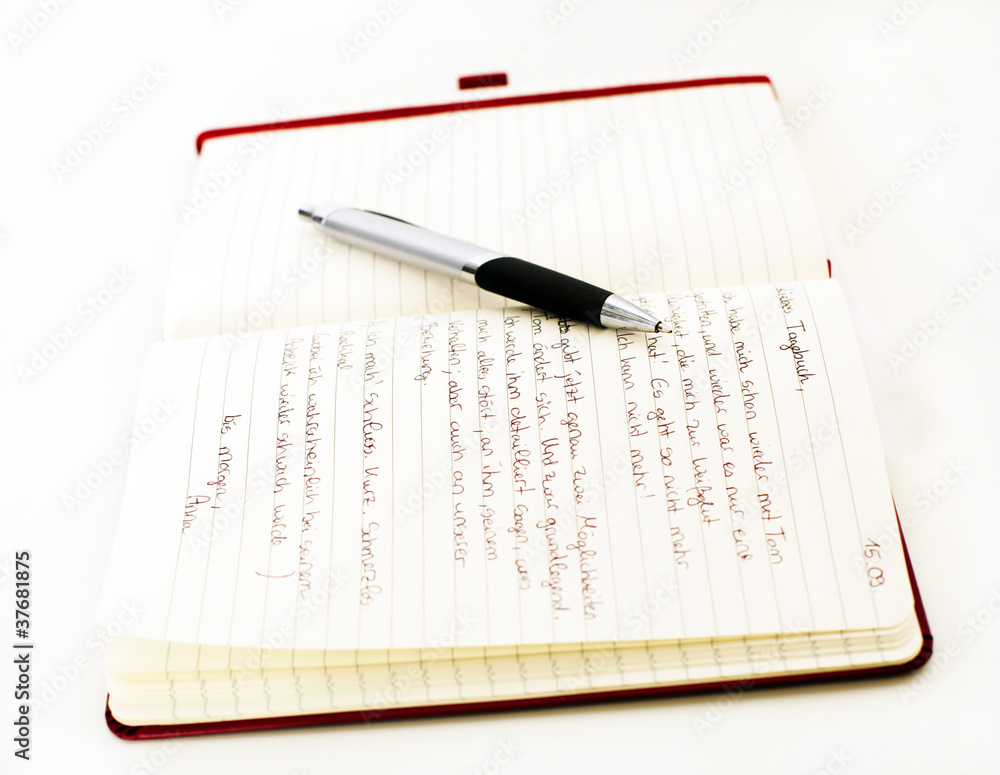 15.09.
Liebes Tagebuch,
ich habe mich schon wieder mit Tom
gestritten, und wieder war es nur eine
die mich zur Weißglut
hat! Es geht so nicht mehr
Ich kann nicht mehr!
gibt jetzt genau zwei Möglichkeiten
Tom ändert sich. Und zwar grundlegend.
Ich werde ihm detailliert sagen, was
mich alles stört, an ihm, seinem
Verhalten; aber auch an unserer
Beziehung.
Ich mach' schluss. Kurz. Schmerzlos
(wobei ich wahrscheinlich bei seinem
wieder schwach werde)
bis morgen,
Anna
Adobe Stock | #37681875
Adobe Stock